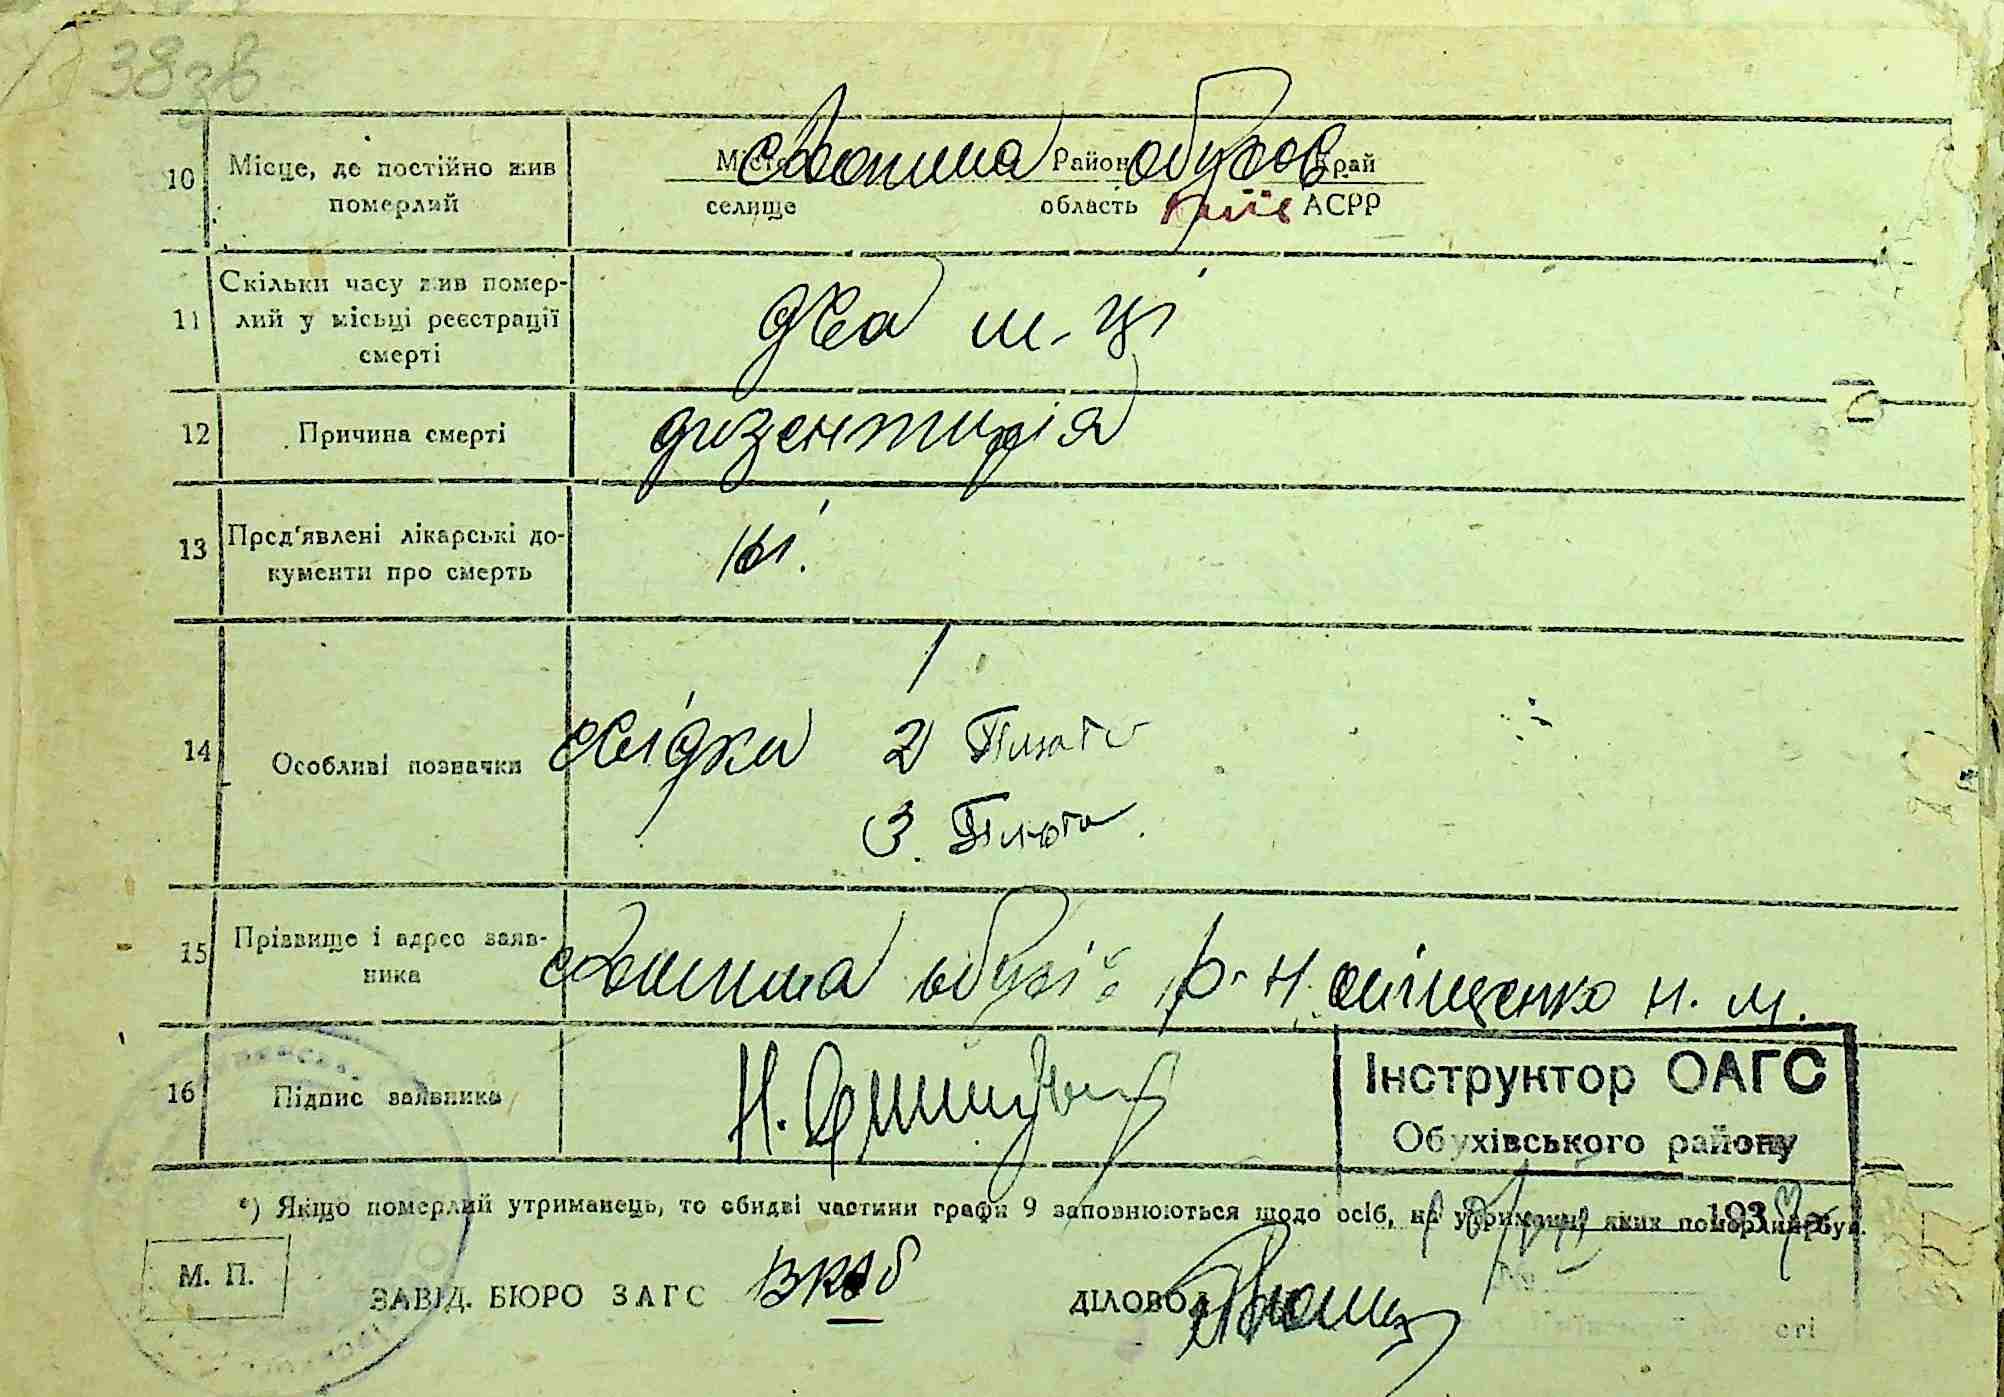 38зв
10 Місце, де постійно жив померлий
Місто Район обухов Край
селище область Київ АСРР
11 Скільки часу жив помер-
лий у місьці реєстрації
смерті
два м-ці
12 Причина смерті дизентирія
13 Пред'явлені лікарські до-
кументи про смерть
ні.
14 Особливі позначки свідки 2
3.
15 Прізвище і адрес заяв-
ника
обухів р-н. Оніщенко н. м.
16 Підпис заявника Н.
Інструктор ОАГС
Обухівського району
*) Якщо померлий утриманець, то обидві частини графи 9 заповнюються щодо осіб, на утриманні яких померлий був.
193
М. П.
ЗАВІД. БЮРО ЗАГС ДІЛОВОД
№